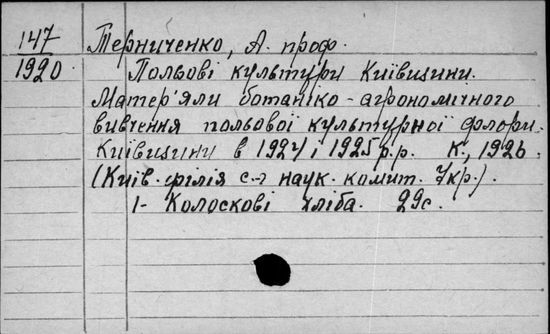 147 Терниченко, А. проф.
1920 Польові культури Київщини.
Матер'яли ботаніко-агрономічного
вивчення польової культурної флори
Київщини в 1924 і 1925 р.р. К., 1926.
(Київ. філія с.-г наук. комит. Укр.).
1- Колоскові хліба. 29с.